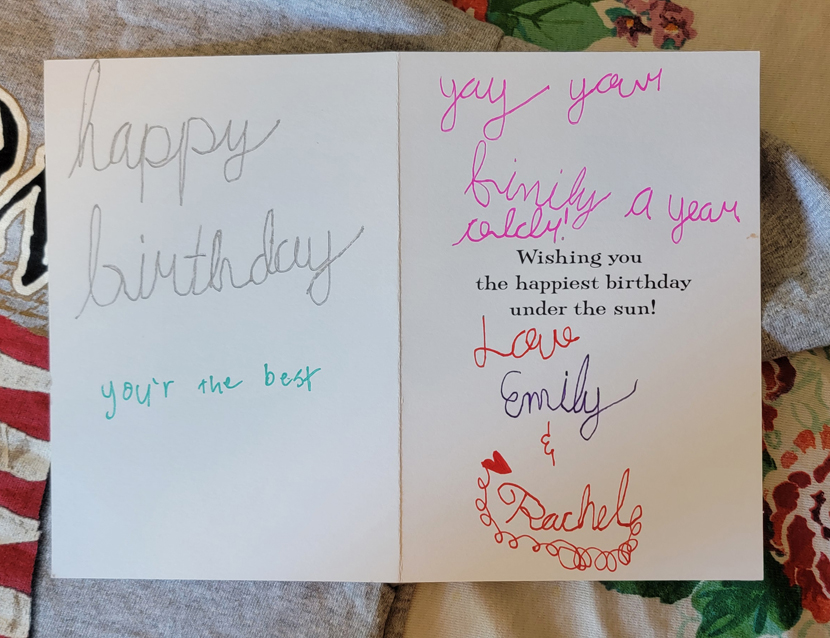 happy
birthday
you'r the best
yay your
finily a year
oldr!
Wishing you
the happiest birthday
under the sun!
Love
Emily
&
Rachel